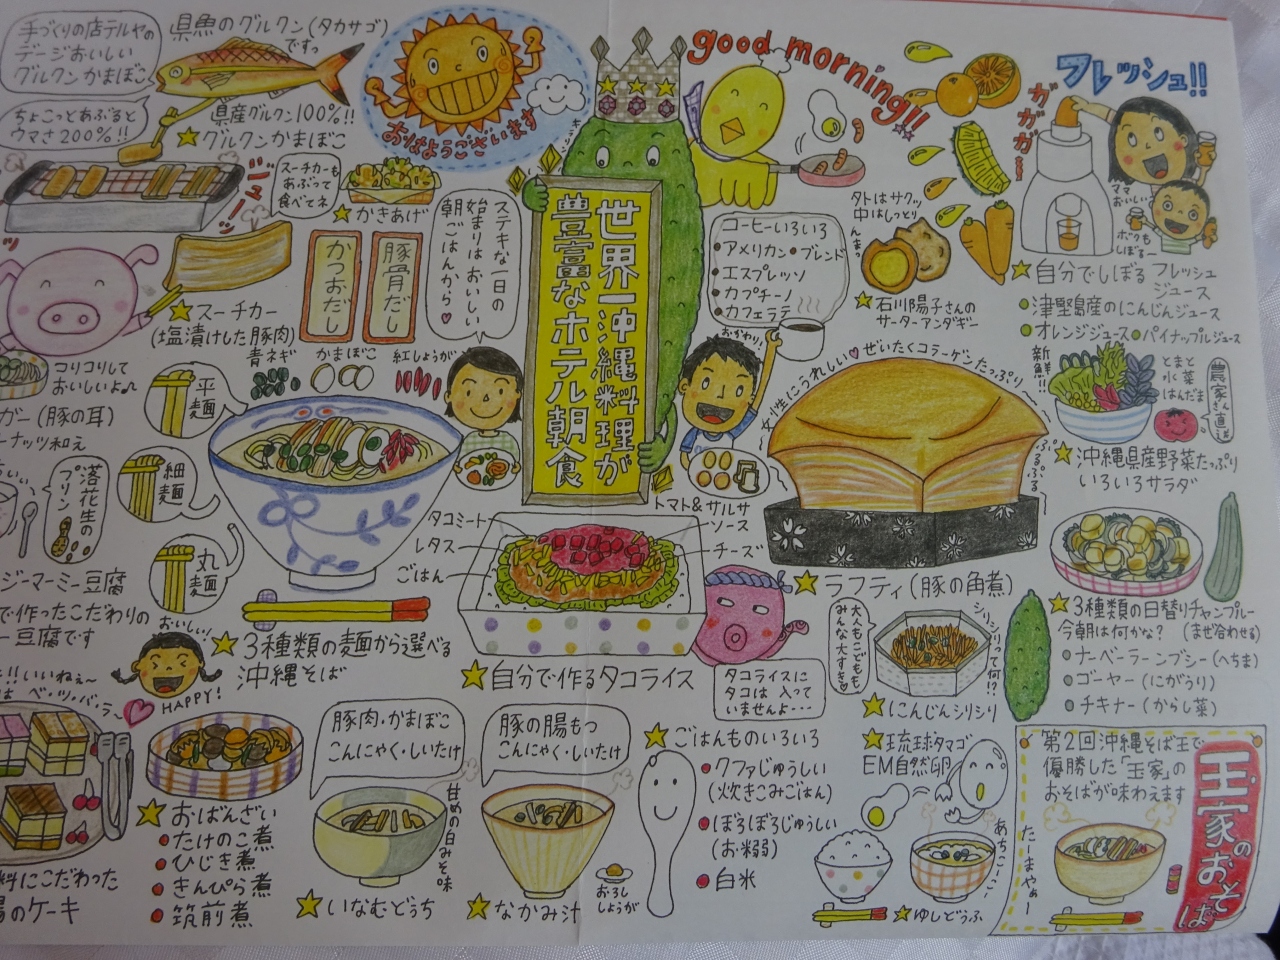 手づくりの店テルヤの
デージおいしい
グルクンかまぼこ
県魚のグルクン(タカサゴ)
ですっ
ちょこっとあぶると
ウマさ200%!!
県産グルクン100%!!
★グルクンかまぼこ
おはようございます
good morning!!
フレッシュ!!
ガガガガ
ママおいしい
ボクもしぼるー
ジュー!!
スーチカーも
あぶって
食べてネ
★かきあげ
ステキな一日の
始まりはおいしい
朝ごはんから♥
世界一沖縄料理が
豊富なホテル朝食
コーヒーいろいろ
・アメリカン・ブレンド
・エスプレッソ
・カプチーノ
・カフェラテ
おかわり!
外はサクッ
中はしっとり
★石川陽子さんの
サーターアンダギー
★自分でしぼるフレッシュ
ジュース
●津堅島産のにんじんジュース
●オレンジジュース●パイナップルジュース
かつおだし
豚骨だし
★スーチカー
(塩漬けした豚肉)
青ネギ
かまぼこ
紅しょうが
コリコリして
おいしいよ♪
ガー(豚の耳)
ーナッツ和え
平麺
細麺
丸麺
落花生の
プリン
ジーマーミー豆腐
で作ったこだわりの
ー豆腐です
おいしい!
HAPPY!
★3種類の麺から選べる
沖縄そば
女性にうれしい♥ぜいたくコラーゲンたっぷり
ぷるぷる
★ラフティ(豚の角煮)
新鮮!!
とまと
水菜
はんだま
農家さん直送
★沖縄県産野菜たっぷり
いろいろサラダ
トマト&サルサ
ソース
タコミート
レタス
ごはん
チーズ
★自分で作るタコライス
タコライスに
タコは入って
いませんよ…
大人もこどもも
みんな大すき♥
シリシリって何!?
★にんじんシリシリ
★3種類の日替りチャンプレー
今朝は何かな?(まぜ合わせる)
●ナーベーラーンブシー(へちま)
●ゴーヤー(にがうり)
●チキナー(からし菜)
!!いいねぇ~
★おばんざい
●たけのこ煮
●ひじき煮
●きんぴら煮
●筑前煮
料にこだわった
のケーキ
豚肉・かまぼこ
こんにゃく・しいたけ
甘めの白みそ味
★いなむどぅち
豚の腸もつ
こんにゃく・しいたけ
おろし
しょうが
★なかみ汁
★ごはんものいろいろ
●クファじゅうしい
(炊きこみごはん)
●ぼろぼろじゅうしい
(お粥)
●白米
★琉球タマゴ
EM自然卵
あちこーこー
★ゆしどうふ
第2回沖縄そば王で
優勝した「玉家」の
おそばが味わえます
たーまやぁー
玉家のおそば